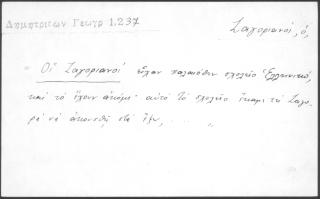 Δημητριεων Γεωγρ 1.237
Ζαγοριανοί, ὁ,
Οἱ Ζαγοριανοί εἶχαν παλαιόθεν σχολεῖο Ἑλληνικό,
καὶ τὸ ἔχουν ἀκόμι· αὐτὸ τὸ σχολεῖο ἔκαμε τὴ Ζαγο-
ρὰ νὰ ἀκουσθῇ στὰ ἔξω, . . . "